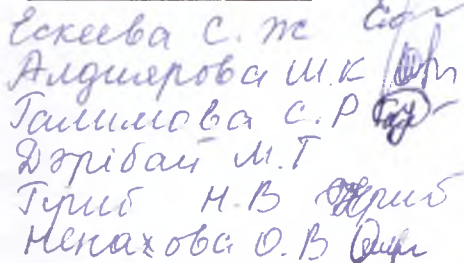 Ескеева С. Ж
Алдиярова Ш.К
Галимова С.Р
Дәрібай М.Т
Гриб Н.В Гриб
Ненахова О.В